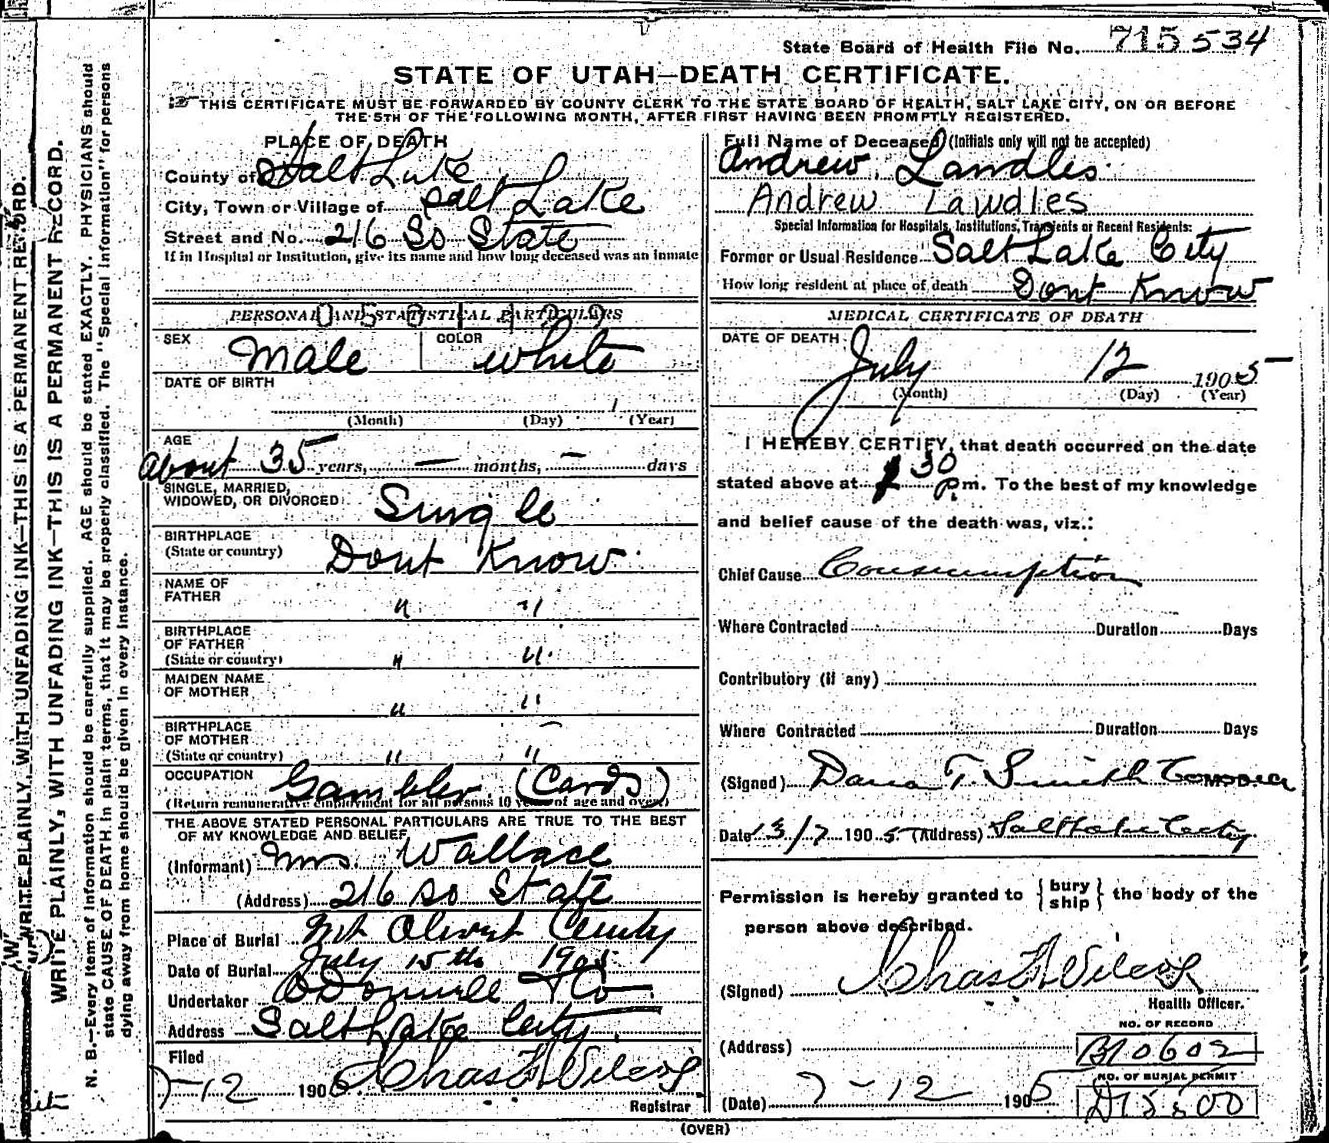 WRITE PLAINLY, WITH UNFADING INK—THIS IS A PERMANENT RECORD.
WRITE PLAINLY, WITH UNFADING INK—THIS IS A PERMANENT RECORD.
N. B.—Every item of information should be carefully supplied. AGE should be stated EXACTLY. PHYSICIANS should
state CAUSE OF DEATH in plain terms, that it may be properly classified. The "Special Information" for persons
dying away from home should be given in every instance.
State Board of Health File No. 715534
STATE OF UTAH—DEATH CERTIFICATE.
THIS CERTIFICATE MUST BE FORWARDED BY COUNTY CLERK TO THE STATE BOARD OF HEALTH, SALT LAKE CITY, ON OR BEFORE
THE 5TH OF THE FOLLOWING MONTH, AFTER FIRST HAVING BEEN PROMPTLY REGISTERED.
PLACE OF DEATH
County of Salt Lake
City, Town or Village of Salt Lake
Street and No. 216 So State
If in Hospital or Institution, give its name and how long deceased was an inmate
PERSONAL AND STATISTICAL PARTICULARS
SEX Male COLOR White
DATE OF BIRTH
(Month) (Day) (Year)
AGE
About 35 years, — months, — days
SINGLE, MARRIED,
WIDOWED, OR DIVORCED Single
BIRTHPLACE
(State or country) Dont Know
NAME OF
FATHER " "
BIRTHPLACE
OF FATHER
(State or country) " "
MAIDEN NAME
OF MOTHER " "
BIRTHPLACE
OF MOTHER
(State or country) " "
OCCUPATION Gambler (Cards)
(Return remunerative employment for all persons 10 years of age and over)
THE ABOVE STATED PERSONAL PARTICULARS ARE TRUE TO THE BEST
OF MY KNOWLEDGE AND BELIEF
(Informant) Mrs. Wallace
(Address) 216 So State
Place of Burial Mt Olivet Cemty
Date of Burial July 15th 1905
Undertaker O'Donnell & Co
Address Salt Lake City.
Filed
7-12 1905 Chas F Wilcox
Registrar
(OVER)
Full Name of Deceased (Initials only will not be accepted)
Andrew Landles
Andrew Lawdles
Special Information for Hospitals, Institutions, Transients or Recent Residents:
Former or Usual Residence Salt Lake City
How long resident at place of death Dont Know
MEDICAL CERTIFICATE OF DEATH
DATE OF DEATH
July 12 1905
(Month) (Day) (Year)
I HEREBY CERTIFY, that death occurred on the date
stated above at 30 P.m. To the best of my knowledge
and belief cause of the death was, viz.:
Chief Cause Consumption
Where Contracted Duration Days
Contributory (if any)
Where Contracted Duration Days
(Signed) Dana T. Smith
Date 13/7 1905 (Address) Salt Lake City
Permission is hereby granted to {bury ship} the body of the
person above described.
(Signed) Chas F Wilcox
Health Officer.
NO. OF RECORD
(Address) B10602
NO. OF BURIAL PERMIT
(Date) 7-12 1905